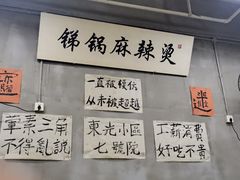 锑锅麻辣烫
一直被模仿
从未被超越
荤素三角
不得乱说
東光小區
七號院
工薪消费
好吃不贵